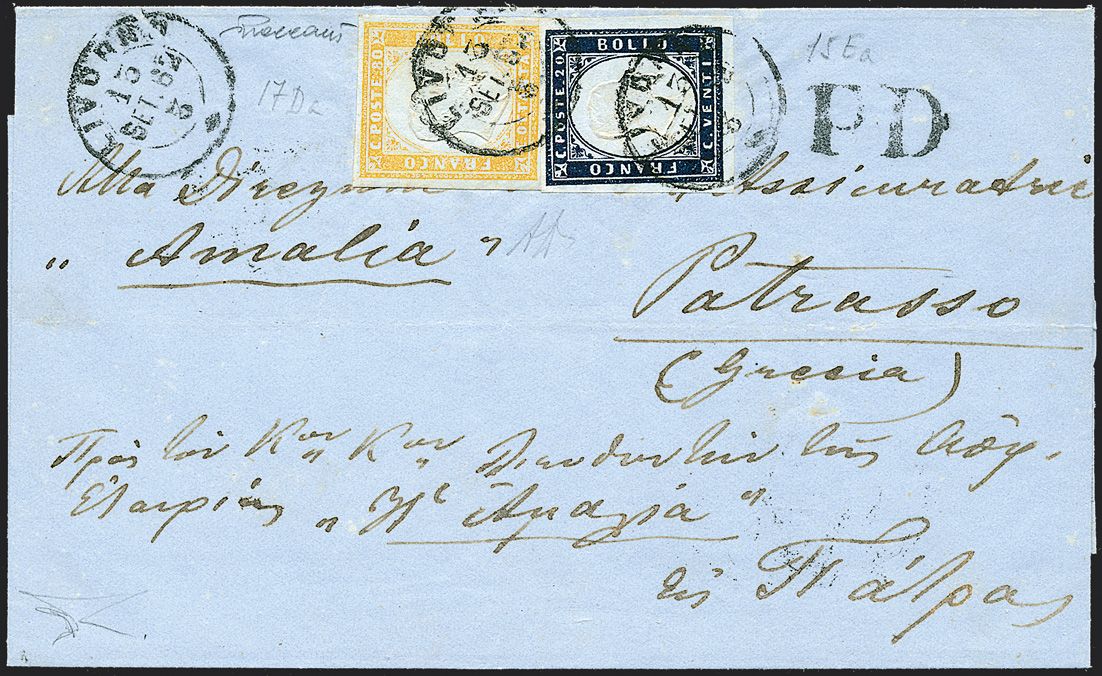 LIVORNO
13
SET. 62
17Da
C. POSTE 80
BOLLO
OTTANTA
FRANCO
LIVORNO
13
SET. 62
C. POSTE 20
BOLLO
C. VENTI
FRANCO
13
15Ea
PD
Alla Direzione Assicuratrice
„ Amalia "
Patrasso
(Grecia)
Πρὸς τὸν Κον Κον Διευθυντὴν τῆς Ἀσφ.
Ἑταιρίας „ Ἡ Ἀμαλία "
εἰς Πάτρας